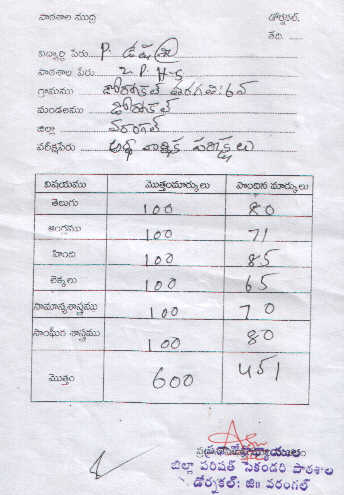 పాఠశాల ముద్ర డోర్నకల్.
తేది. ......
విద్యార్థి పేరు. P. ఉష
పాఠశాల పేరు Z. P. H-S
గ్రామము డోర్నకల్ తరగతి: 6వ
మండలము డోర్నకల్
జిల్లా వరంగల్
పరీక్షపేరు అర్ధ వార్షిక పరీక్షలు
విషయము మొత్తంమార్కులు పొందిన మార్కులు
తెలుగు 100 80
ఆంగ్లము 100 71
హింది 100 85
లెక్కలు 100 65
సామాన్యశాస్త్రము 100 70
సాంఘీక శాస్త్రము 100 80
మొత్తం 600 451
జిల్లా పరిషత్ సెకండరి పాఠశాల
డోర్నకల్: జిః వరంగల్